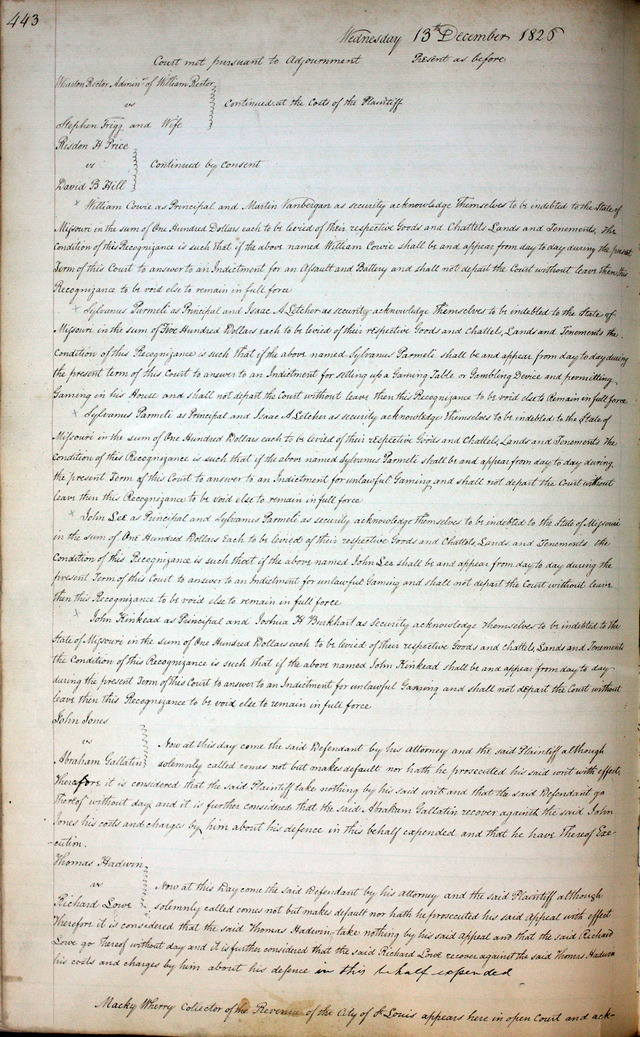 443
Wednesday 13th December 1826
Court met pursuant to Adjournment Present as before
Wharton Rector Admin.r of William Rector
vs Continued at the Costs of the Plaintiff
Stephen Trigg and Wife
Risdon H Price
vs Continued by consent
David B Hill
x William Cowie as Principal and Martin Vanbergan as security acknowledge Themselves to be indebted to the State of
Missouri in the sum of One Hundred Dollars each to be levied of their respective Goods and Chattels Lands and Tenements. The
Condition of this Recognizance is such that if the above named William Cowie shall be and appear from day to day during the present
Term of this Court to answer to an Indictment for an Assault and Battery and shall not depart the Court without leave then this
Recognizance to be void else to remain in full force
x Sylvanus Parmeli as Principal and Isaac A Letcher as security acknowledge Themselves to be indebted to the State of
Missouri in the sum of Five Hundred Dollars each to be levied of their respective Goods and Chattel, Lands and Tenements the
Condition of this Recognizance is such that if the above named Sylvanus Parmeli shall be and appear from day to day during
the present term of this Court to answer to an Indictment for setting up a Gaming Table or Gambling Device and permitting
Gaming in his House and shall not depart the Court without leave then this Recognizance to be void else to Remain in full force
x Sylvanus Parmeli as Principal and Isaac A Letcher as security acknowledge Themselves to be indebted to the State of
Missouri in the sum of One Hundred Dollars each to be levied of their respective Goods and Chattels, Lands and Tenements The
Condition of this Recognizance is such that if the above named Sylvanus Parmeli shall be and appear from day to day during
the present Term of this Court to answer to an Indictment for unlawful Gaming and shall not depart the Court without
leave then this Recognizance to be void else to remain in full force
x John Lee as Principal and Sylvanus Parmeli as security acknowledge themselves to be indebted to the State of Missouri
in the sum of One Hundred Dollars Each to be levied of their respective Goods and Chattels, Lands and Tenements the
Condition of this Recognizance is such that if the above named John Lee shall be and appear from day to day during the
present Term of this Court to answer to an Indictment for unlawful Gaming and shall not depart the Court without leave
then this Recognizance to be void else to remain in full force
x John Kinkead as Principal and Joshua H Burkhart as security acknowledge Themselves to be indebted to the
State of Missouri in the sum of One Hundred Dollars each to be levied of their respective Goods and chattels, Lands and Tenements
the Condition of this Recognizance is such that if the above named John Kinkead shall be and appear from day to day
during the present Term of this Court to answer to an Indictment for unlawful Gaming and shall not depart the Court without
leave then this Recognizance to be void else to remain in full force
John Jones
vs Now at this day come the said Defendant by his Attorney and the said Plaintiff although
Abraham Gallatin solemnly called comes not but makes default nor hath he prosecuted his said writ with effect,
Therefore it is considered that the said Plaintiff take nothing by his said writ and that the said Defendant go
Thereof without day and it is further considered that the said Abraham Gallatin recover against the said John
Jones his costs and charges by him about his defence in this behalf expended and that he have Thereof Exe-
-cution.
Thomas Hadwin
vs Now at this Day come the said Defendant by his attorney and the said Plaintiff although
Richard Lowe solemnly called comes not but makes default nor hath he prosecuted his said Appeal with effect
Therefore it is considered that the said Thomas Hadwin take nothing by his said appeal and that the said Richard
Lowe go thereof without day and it is further considered that the said Richard Lowe recover against the said Thomas Hadwin
his costs and charges by him about his defence in this behalf expended
Macky Wherry Collector of the Revenue of the City of St Louis appears here in open Court and ack-